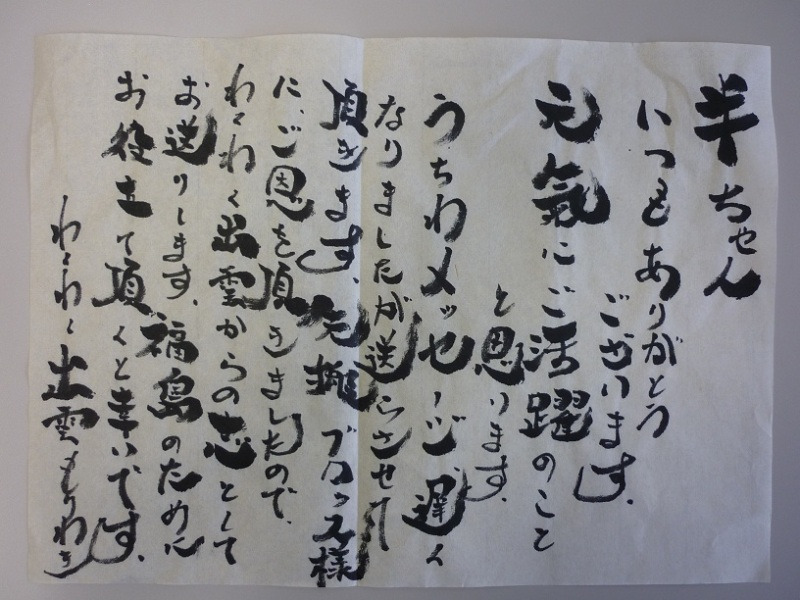 半ちゃん
いつもありがとう
ございます。
元氣にご活躍のこと
と思います。
うちわメッセージ、遅く
なりましたが送らさせて
頂きます。様
に、ご恩を頂きましたので、
わくわく出雲からの志として
お送りします。福島のために
お役立て頂くと幸いです。
わくわく出雲もりわき